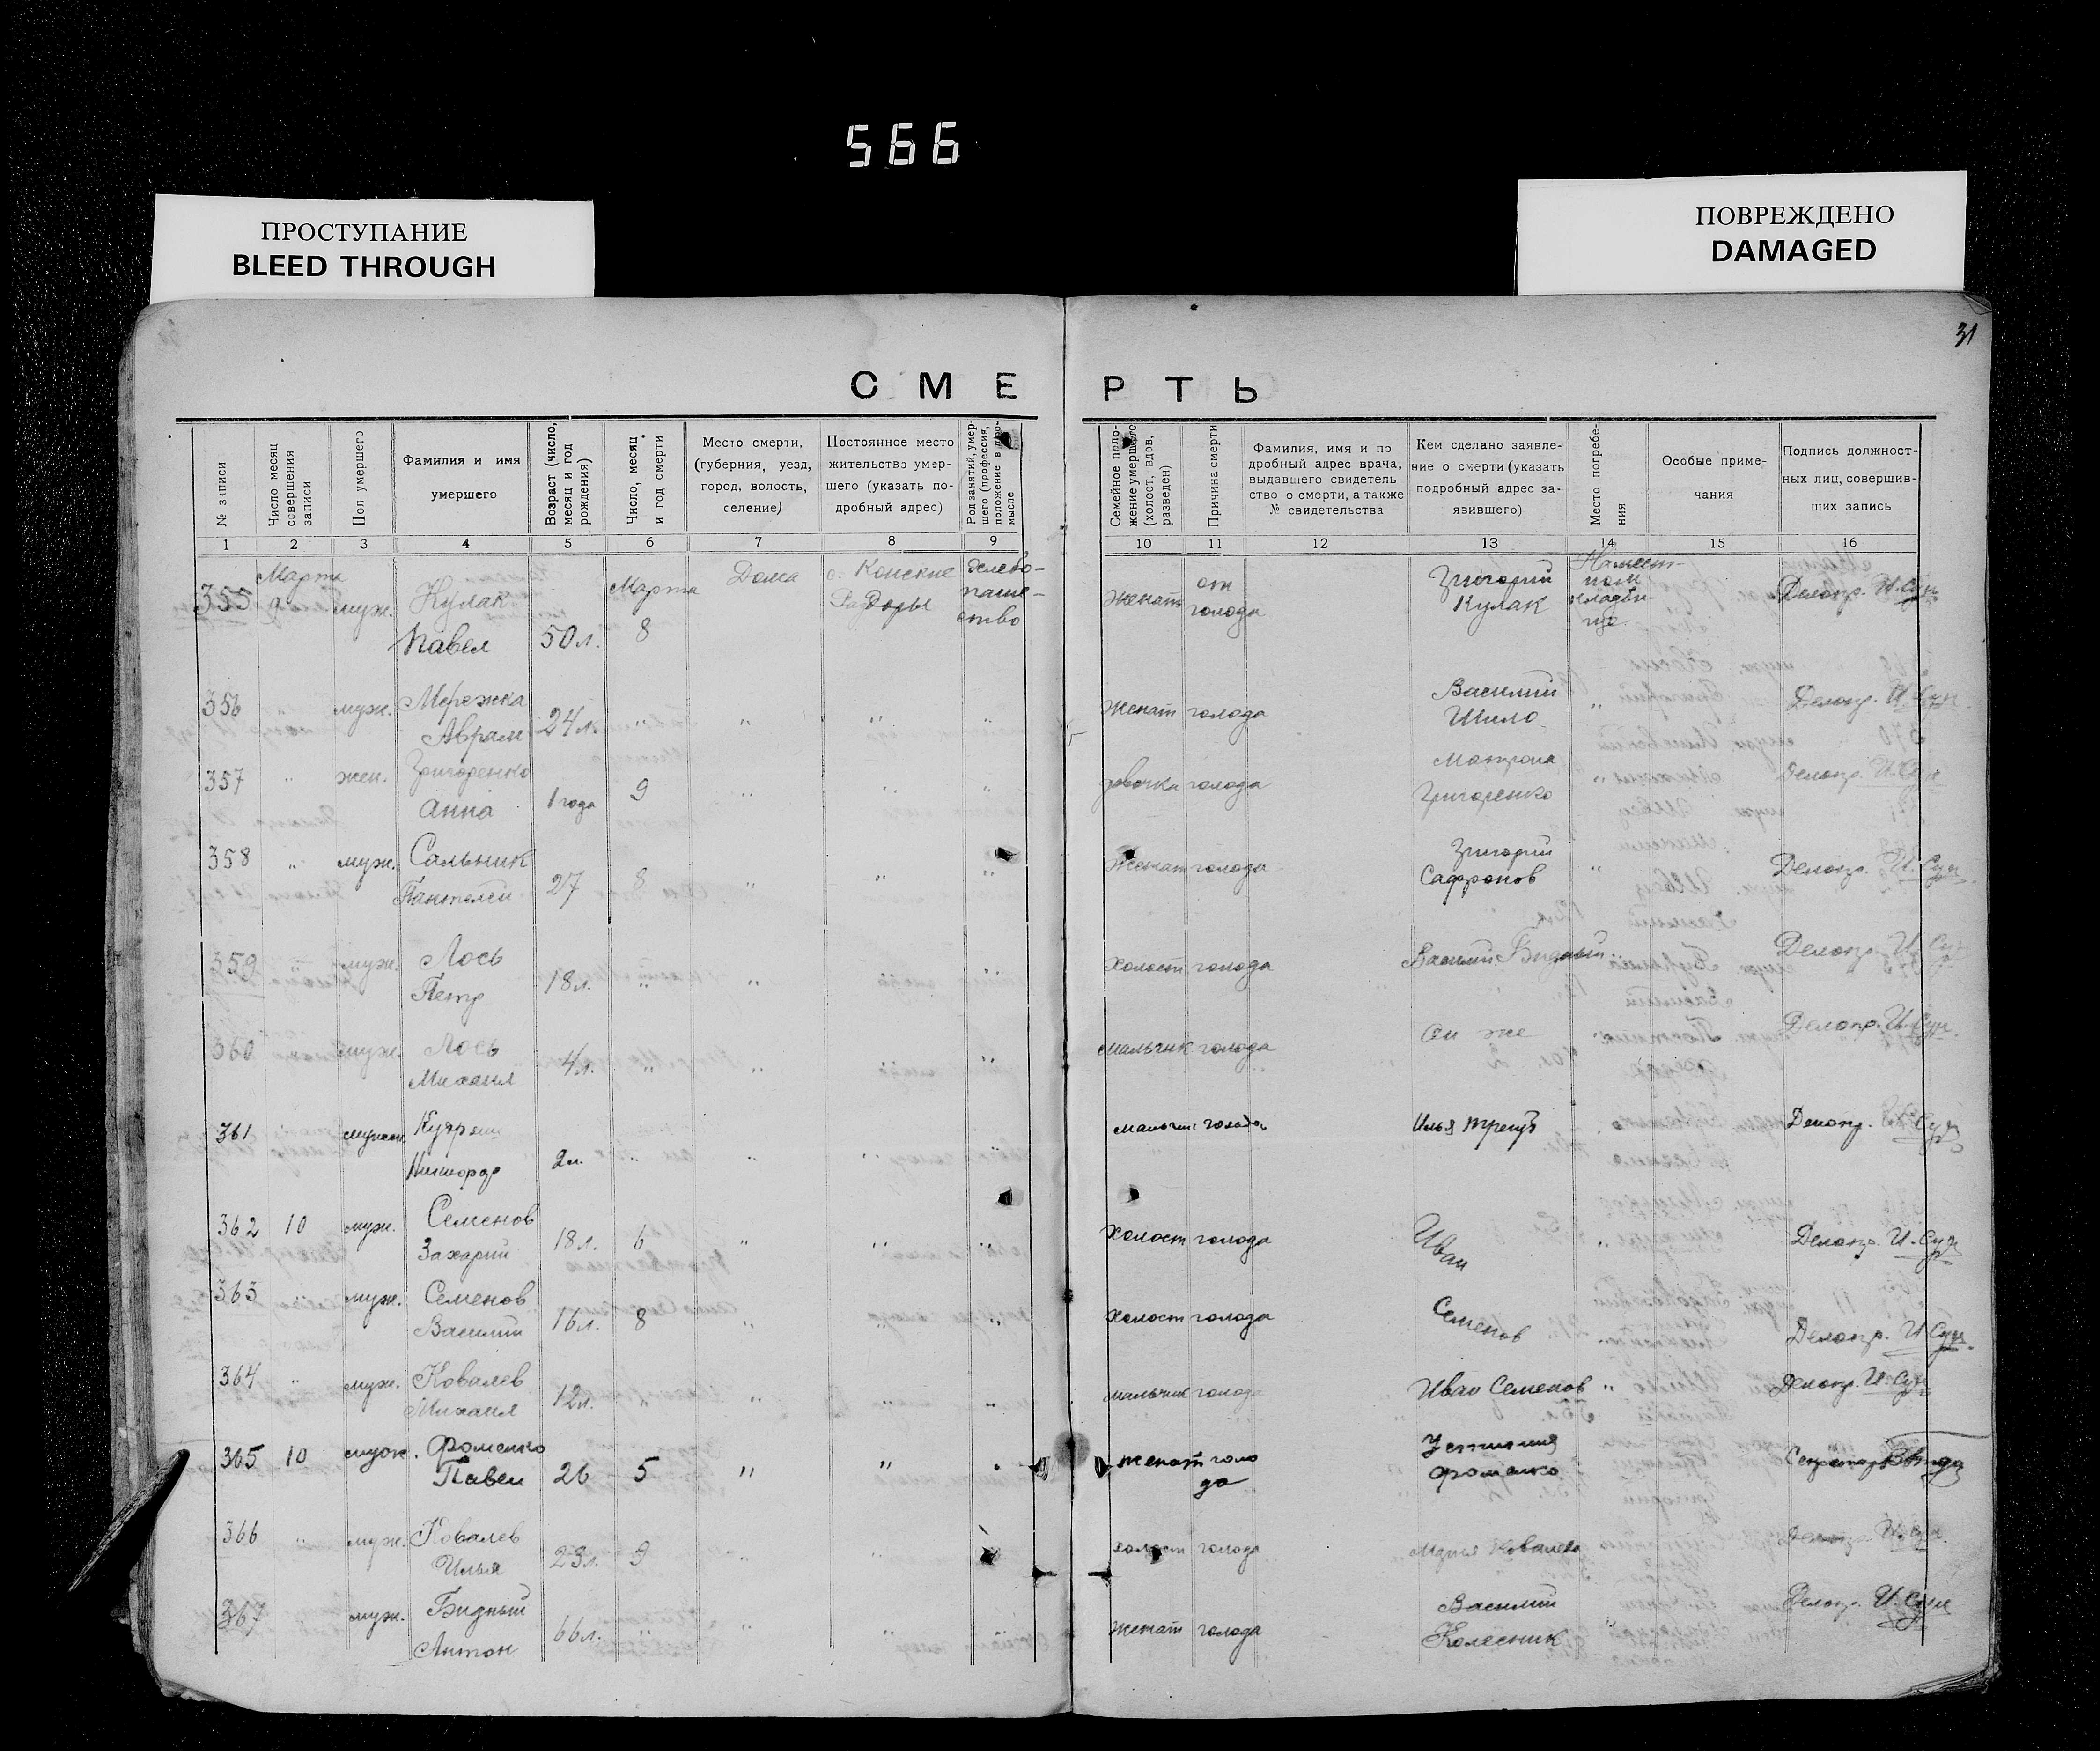 566
ПРОСТУПАНИЕ
BLEED THROUGH
ПОВРЕЖДЕНО
DAMAGED
31
СМЕРТЬ
№ записи
Число месяц совершения записи
Пол умершего
Фамилия и имя умершего
Возраст (число, месяц и год рождения)
Число, месяц и год смерти
Место смерти, (губерния, уезд, город, волость, селение)
Постоянное место жительство умершего (указать подробный адрес)
Род занятий, умершего (профессия, положение в промысле
Семейное положение умершего (холост, вдов, разведен)
Причина смерти
Фамилия, имя и подробный адрес врача, выдавшего свидетельство о смерти, а также № свидетельства
Кем сделано заявление о смерти (указать подробный адрес заявившего)
Место погребения
Особые примечания
Подпись должностных лиц, совершивших запись
1 2 3 4 5 6 7 8 9 10 11 12 13 14 15 16
355 Марта 9 муж. Кулак Павел 50 л. Марта 8 Дома с. Конские Раздоры хлебопашество женат от голода Григорий Кулак На местном кладбище Делопр.
356 " муж. Мережка Аврам 24 л. " " " " женат голода Василий Шило " Делопр.
357 " жен. Григоренко Анна 1 года 9 " " " девочка голода Мотрона Григоренко " Делопр.
358 " муж. Сальник Пантелей 27 8 " " " женат голода Григорий Сафронов " Делопр.
359 " муж. Лось Петр 18 л. " " " " холост голода Василий Бидный " Делопр.
360 муж. Лось Михаил 4 л. " " " " мальчик голода Он же " Делопр.
361 муж. 2 л. " " " " голода Илья Делопр.
362 10 муж. Семенов Захарий 18 л. 6 " " " Холост голода Иван " Делопр.
363 муж. Семенов Василий 16 л. 8 " " " Холост голода Семенов Делопр.
364 " муж. Ковалев Михаил 12 л. " " " " мальчик голода Иван Семенов " Делопр.
365 10 муж. Фоменко Павел 26 5 " " женат голода Устиния Фоменко Секретарь
366 " муж. Ковалев Илья 23 л. 9 " " холост голода Мария Ковалева Делопр.
367 " муж. Бидный Антон 66 л. " " " " женат голода Василий Колесник " Делопр.